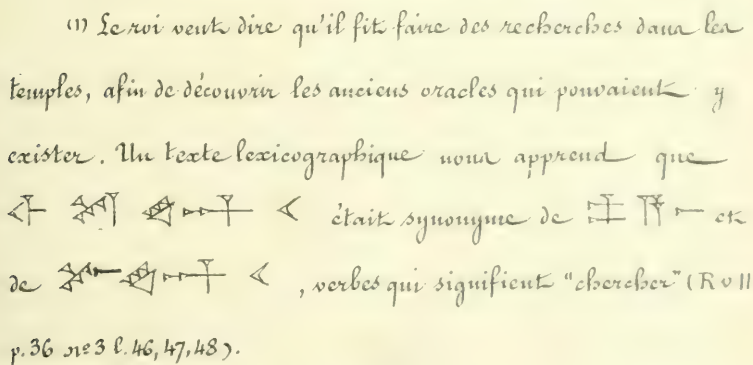 (1) Le roi veut dire qu'il fit faire des recherches dans les
temples, afin de découvrir les anciens oracles qui pouvaient y
exister. Un texte lexicographique nous apprend que
était synonyme de et
de , verbes qui signifient "chercher" (R v II
p. 36 nº 3 l. 46, 47, 48).